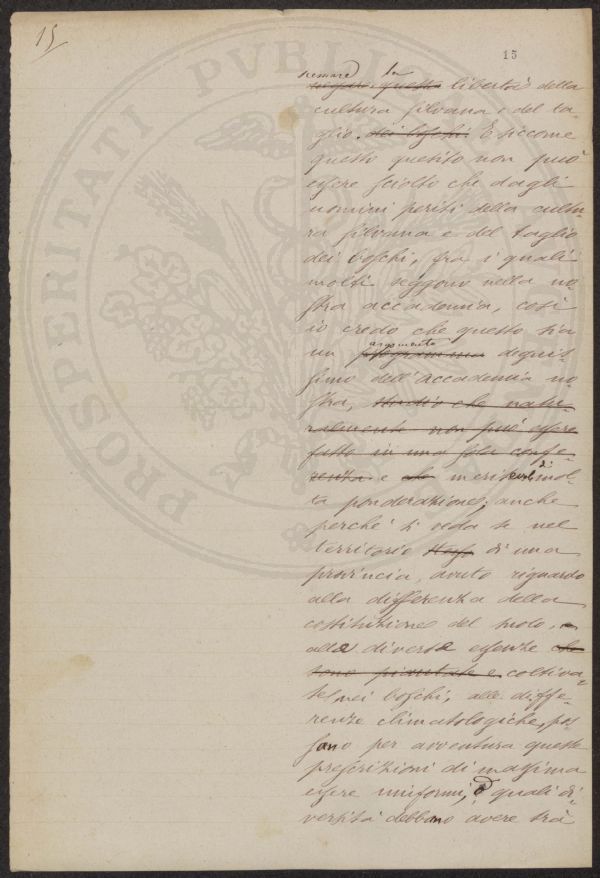 15
15
PROSPERITATI PUBLICAE
la
questa libertà della
cultura silvana e del ta-
glio. dei boschi. E siccome
questo quesito non può
essere sciolto che dagli
uomini periti della cultu
ra silvana e del taglio
dei boschi, fra i quali
molti seggono nella no
stra accademia, così
io credo che questo sia
argomento
un programma degnis
simo dell'accademia no
stra, studio che natu-
ralmente non può essere
fatto in una sola confe
renza e che di mol-
ta ponderazione, anche
perché si veda se nel
territorio stesso di una
provincia, avuto riguardo
alla differenza della
costituzione del suolo, e
alle diverse essenze che
sono piantate e coltiva-
te nei boschi, alle diffe-
renze climatologiche, pos
sano per avventura queste
prescrizioni di massima
essere uniformi, o quali di-
versità debbano avere tra